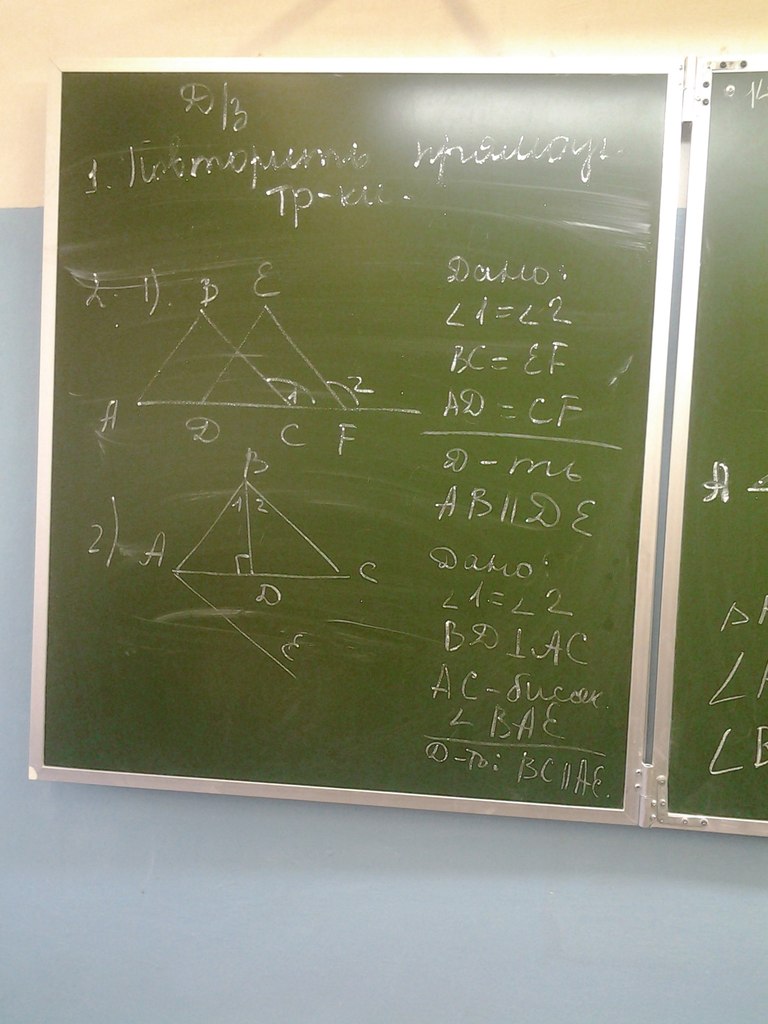 Д/з
1. Повторить прямоуг.
тр-ки.
2. 1).
B E
A D C F
1 2
Дано:
∠1=∠2
BC=EF
AD=CF
Д-ть
AB||DE
2)
B
1 2
A C
D
E
Дано:
∠1=∠2
BD⊥AC
AC-бисек.
∠BAE
Д-ть: BC||AE.
A
∠
∠B